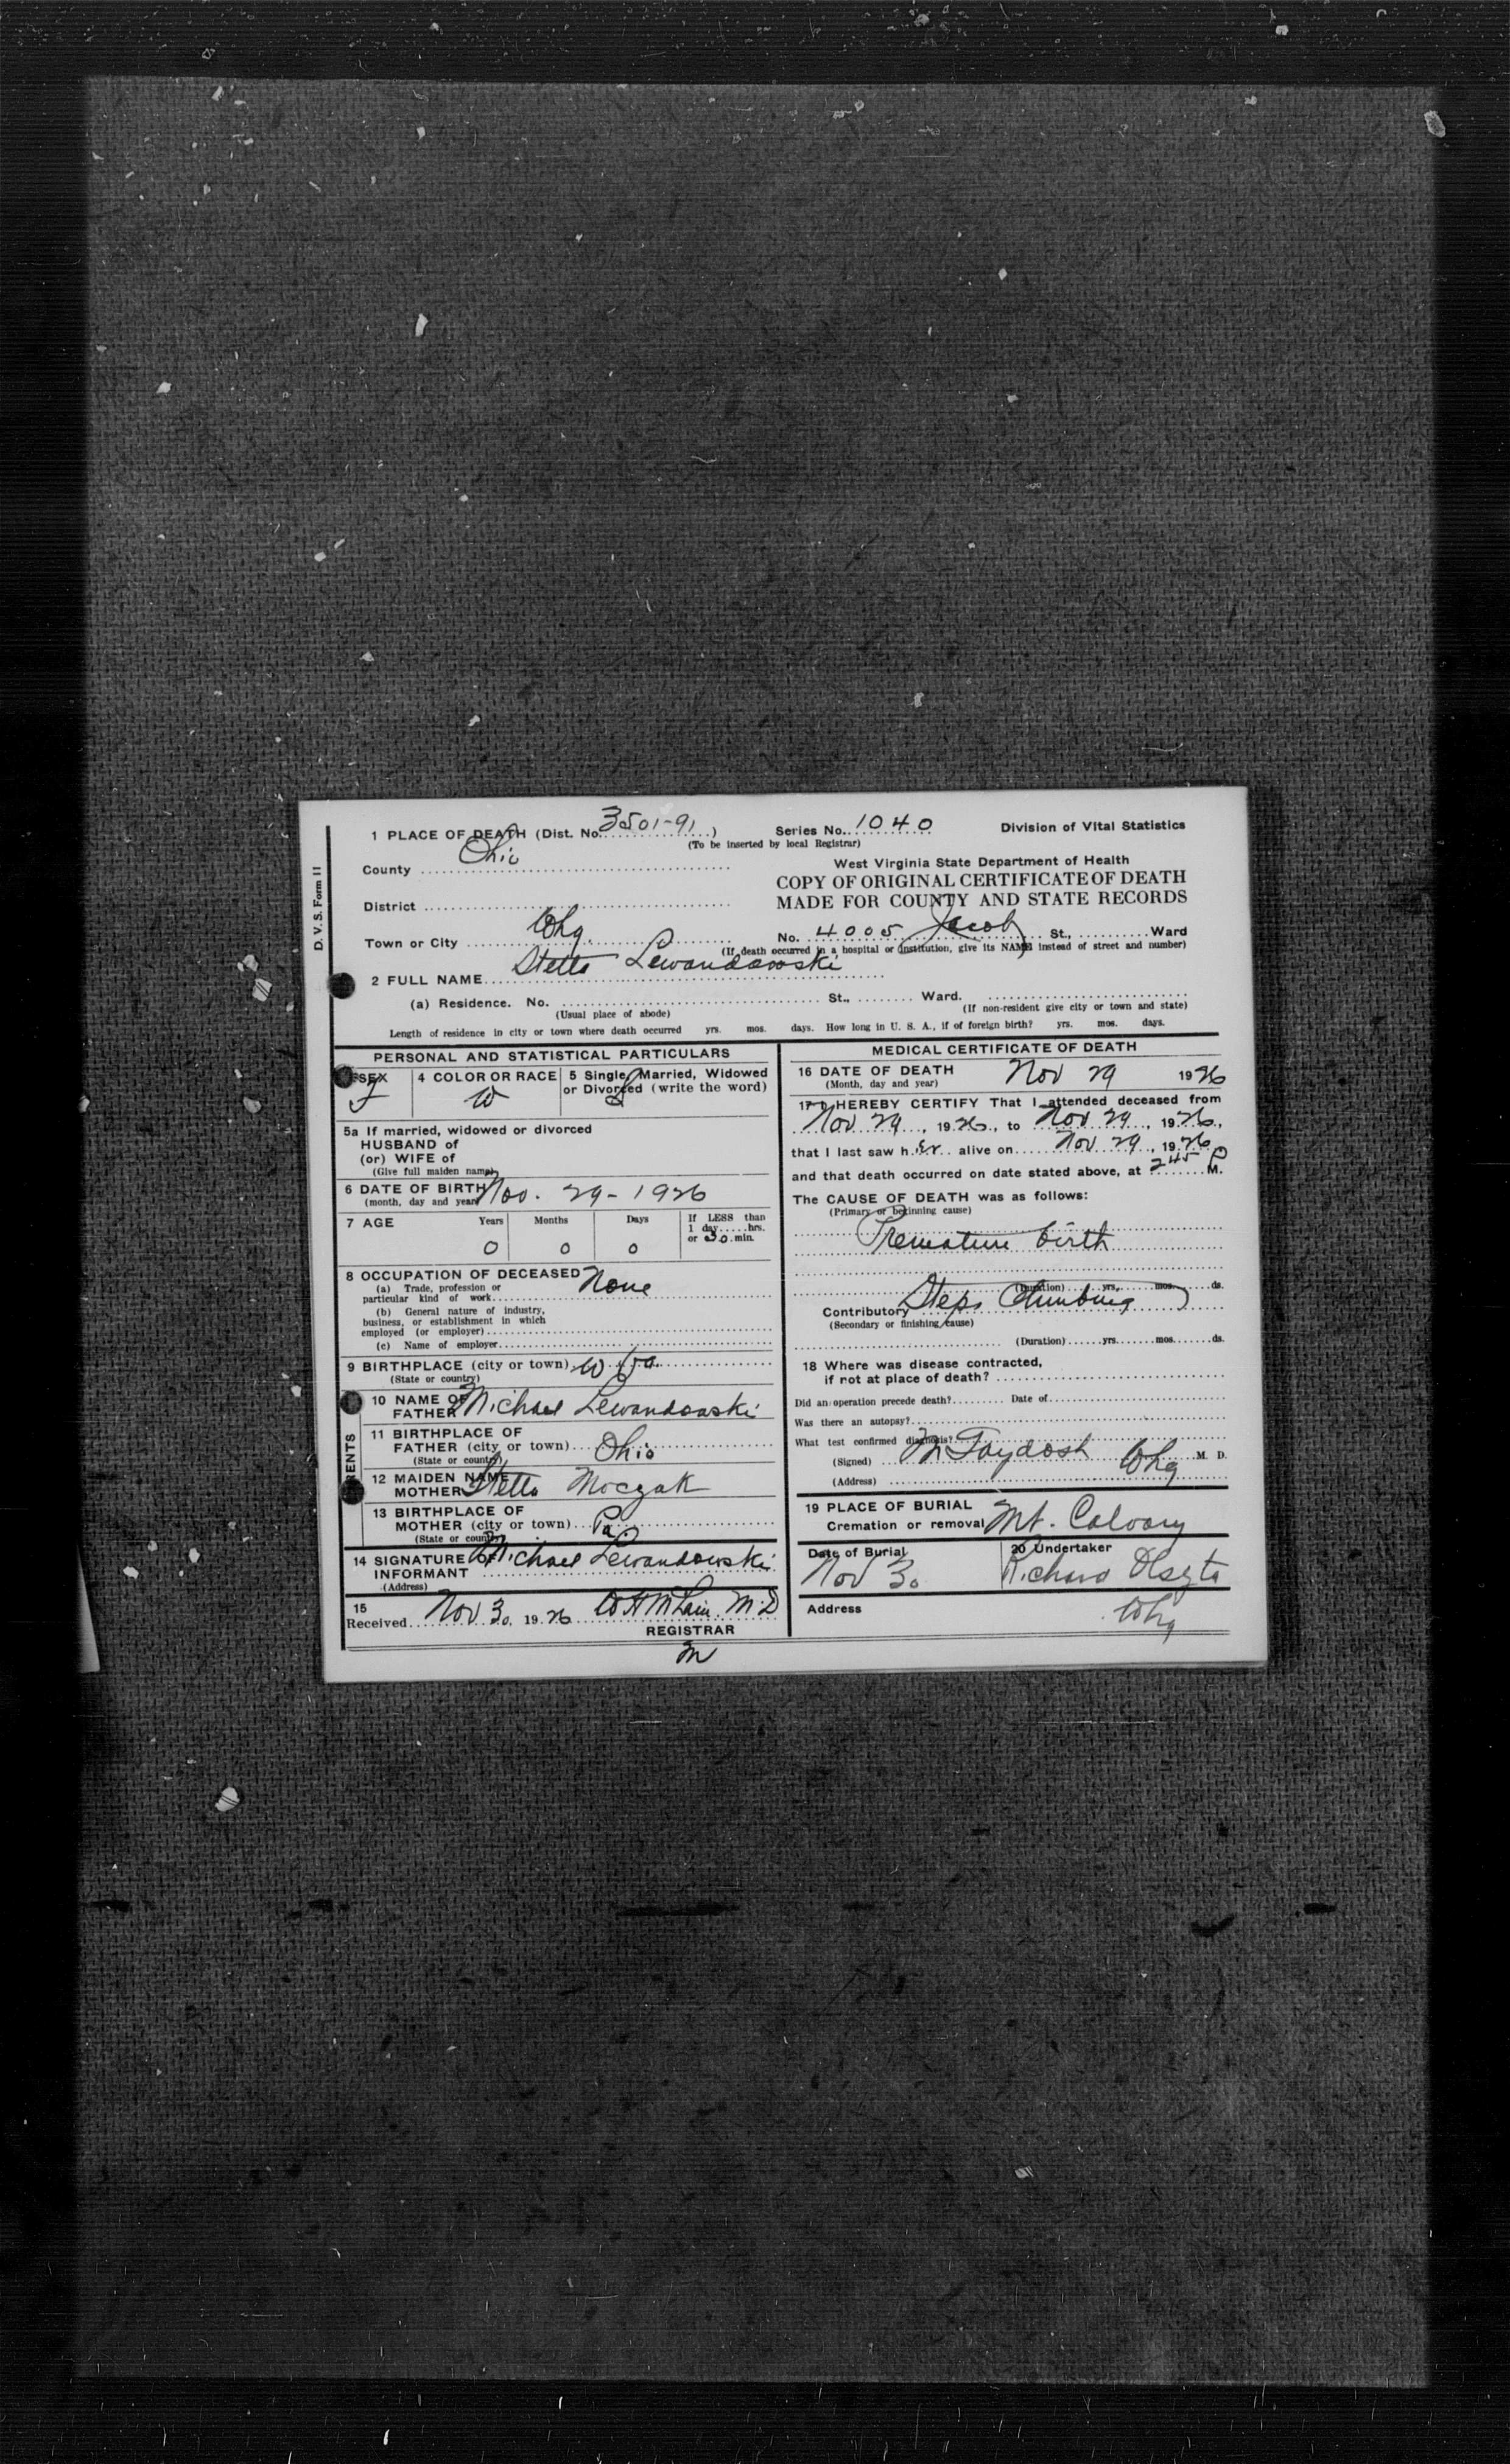 D. V. S. Form 11
1 PLACE OF DEATH (Dist. No. 3501-91) Series No. 1040 Division of Vital Statistics
(To be inserted by local Registrar)
County Ohio
West Virginia State Department of Health
COPY OF ORIGINAL CERTIFICATE OF DEATH
MADE FOR COUNTY AND STATE RECORDS
District
Town or City Whg. No. 4005 Jacob St., Ward
(If death occurred in a hospital or institution, give its NAME instead of street and number)
2 FULL NAME Stella Lewandowski
(a) Residence. No. St., Ward.
(Usual place of abode) (If non-resident give city or town and state)
Length of residence in city or town where death occurred yrs. mos. days. How long in U. S. A., if of foreign birth? yrs. mos. days.
PERSONAL AND STATISTICAL PARTICULARS
3 SEX 4 COLOR OR RACE 5 Single, Married, Widowed
or Divorced (write the word)
F W S
5a If married, widowed or divorced
HUSBAND of
(or) WIFE of
(Give full maiden name)
6 DATE OF BIRTH Nov. 29 - 1926
(month, day and year)
7 AGE Years Months Days If LESS than
1 day hrs.
or 30 min.
0 0 0
8 OCCUPATION OF DECEASED None
(a) Trade, profession or
particular kind of work
(b) General nature of industry,
business, or establishment in which
employed (or employer)
(c) Name of employer
9 BIRTHPLACE (city or town) W Va
(State or country)
PARENTS
10 NAME OF
FATHER Michael Lewandowski
11 BIRTHPLACE OF
FATHER (city or town) Ohio
(State or country)
12 MAIDEN NAME
MOTHER Stella Moczak
13 BIRTHPLACE OF
MOTHER (city or town) Pa
(State or country)
14 SIGNATURE OF
INFORMANT Michael Lewandowski
(Address)
15
Received Nov 30, 1926 W H McLain, M.D
REGISTRAR
m
MEDICAL CERTIFICATE OF DEATH
16 DATE OF DEATH Nov 29 1926
(Month, day and year)
17 I HEREBY CERTIFY That I attended deceased from
Nov 29, 1926, to Nov 29, 1926,
that I last saw her alive on Nov 29, 1926
and that death occurred on date stated above, at 2 45 P M.
The CAUSE OF DEATH was as follows:
(Primary or beginning cause)
Premature birth
(Duration) yrs. mos. ds.
Contributory Steps Climbing
(Secondary or finishing cause)
(Duration) yrs. mos. ds.
18 Where was disease contracted,
if not at place of death?
Did an operation precede death? Date of
Was there an autopsy?
What test confirmed diagnosis?
(Signed) M Gaydosh Whg M. D.
(Address)
19 PLACE OF BURIAL
Cremation or removal Mt. Calvary
Date of Burial 20 Undertaker
Nov 30 Richard Olszta
Address Whg